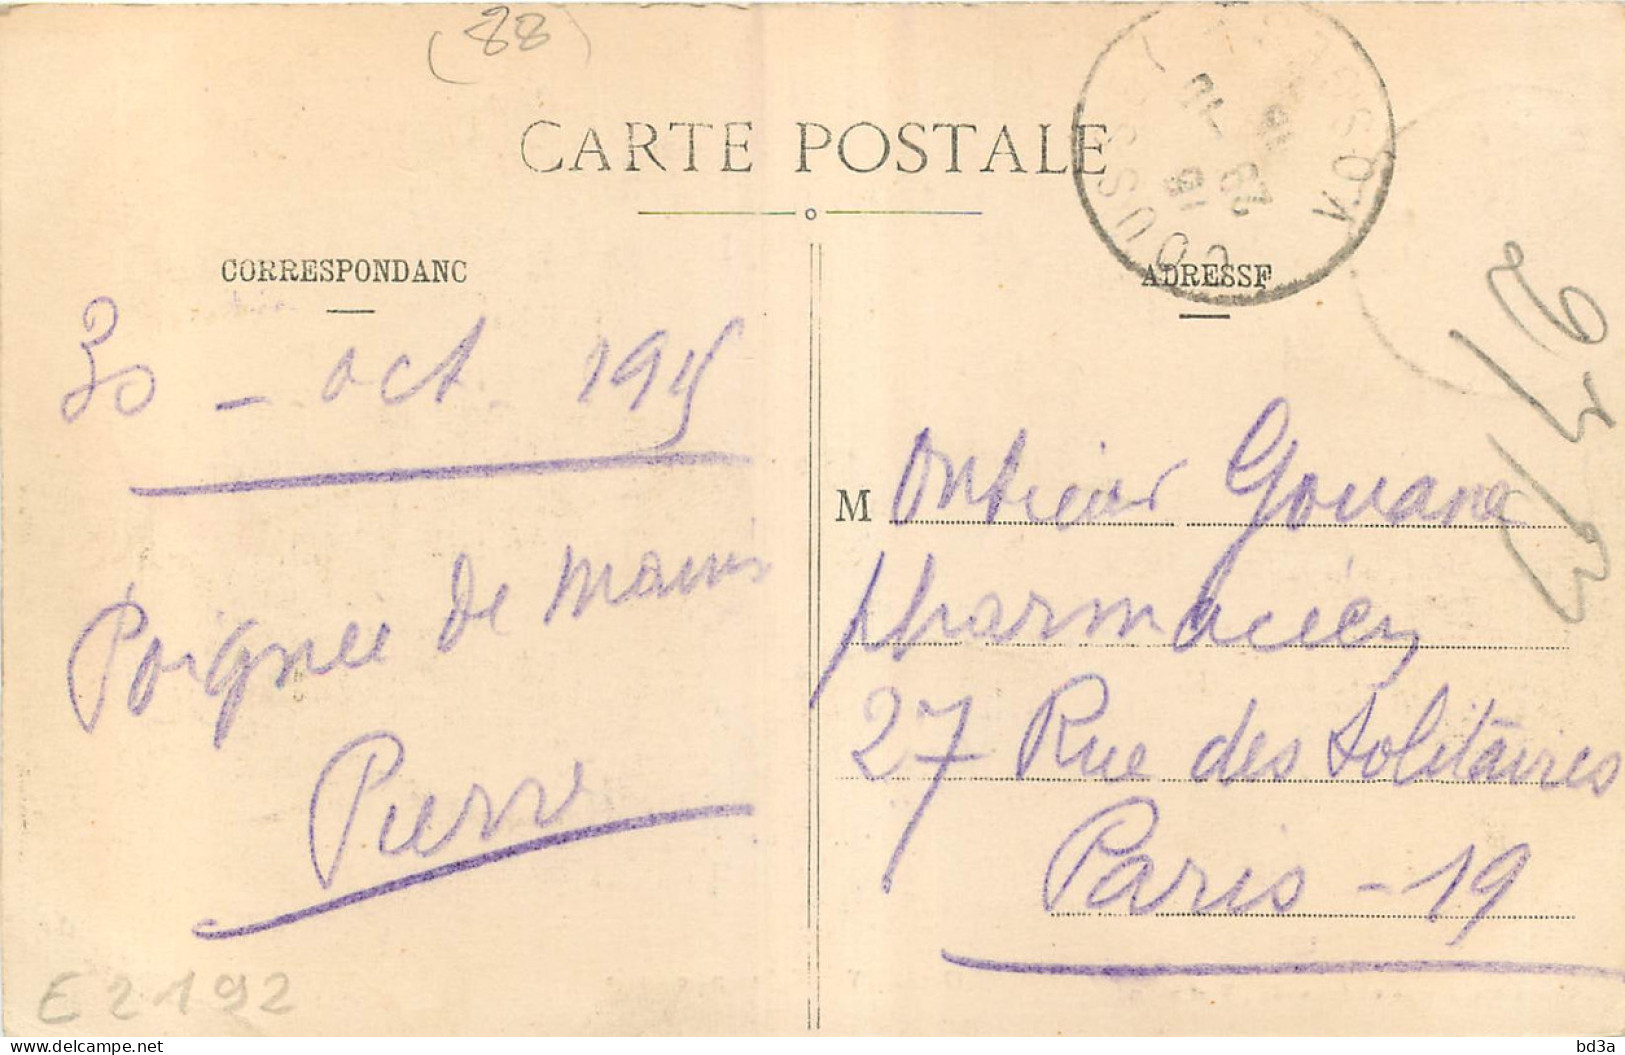 (88)
CARTE POSTALE
CORRESPONDANC
ADRESSE
COUSSEY
VOSGES
30 - oct 1915
Poignée de mains
Pierre
Monsieur
pharmacien
27 Rue des Solitaires
Paris - 19
E 2192
delcampe.net
bd3a